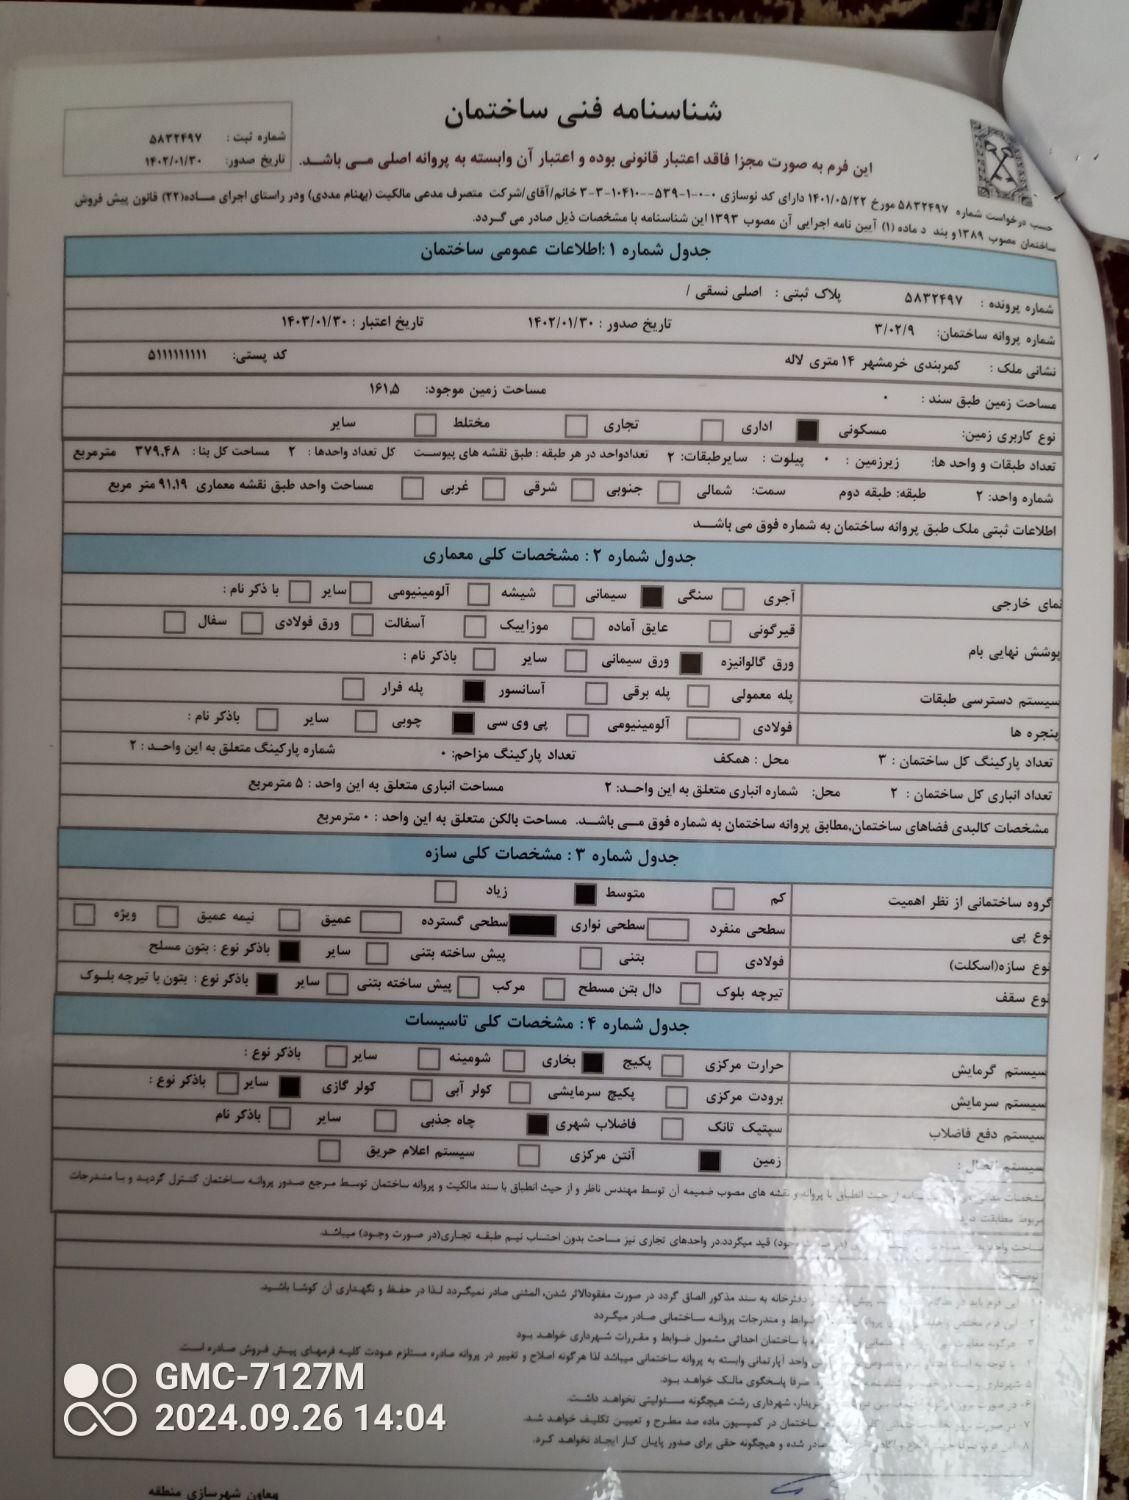 شناسنامه فنی ساختمان
شماره ثبت : ۵۸۳۲۴۹۷
تاریخ صدور: ۱۴۰۲/۰۱/۳۰
این فرم به صورت مجزا فاقد اعتبار قانونی بوده و اعتبار آن وابسته به پروانه اصلی مــی باشــد.
حسب درخواست شماره ۵۸۳۲۴۹۷ مورخ ۱۴۰۱/۰۵/۲۲ دارای کد نوسازی ۰-۰-۱-۵۳۹--۱۰۴۱۰-۳-۳ خانم/آقای/شرکت متصرف مدعی مالکیت (بهنام مددی) ودر راستای اجرای مــاده(۲۲) قانون پیش فروش
ساختمان مصوب ۱۳۸۹و بند د ماده (۱) آیین نامه اجرایی آن مصوب ۱۳۹۳ این شناسنامه با مشخصات ذیل صادر می گردد.
جدول شماره ۱ :اطلاعات عمومی ساختمان
شماره پرونده : ۵۸۳۲۴۹۷ پلاک ثبتی : اصلی نسقی /
شماره پروانه ساختمان: ۳/۰۲/۹ تاریخ صدور : ۱۴۰۲/۰۱/۳۰ تاریخ اعتبار : ۱۴۰۳/۰۱/۳۰
نشانی ملک : کمربندی خرمشهر ۱۴ متری لاله کد پستی: ۵۱۱۱۱۱۱۱۱۱
مساحت زمین طبق سند : ۰ مساحت زمین موجود: ۱۶۱.۵
نوع کاربری زمین: مسکونی اداری تجاری مختلط سایر
تعداد طبقات و واحد ها: زیرزمین : ۰ پیلوت : سایرطبقات: ۲ تعدادواحد در هر طبقه : طبق نقشه های پیوســت کل تعداد واحدها : ۲ مساحت کل بنا : ۳۷۹.۴۸ مترمربع
شماره واحد: ۲ طبقه: طبقه دوم سمت: شمالی جنوبی شرقی غربی مساحت واحد طبق نقشه معماری ۹۱.۱۹ متر مربع
اطلاعات ثبتی ملک طبق پروانه ساختمان به شماره فوق می باشــد
جدول شماره ۲ : مشخصات کلی معماری
نمای خارجی آجری سنگی سیمانی شیشه آلومینیومی سایر با ذکر نام :
پوشش نهایی بام قیرگونی عایق آماده موزاییک آسفالت ورق فولادی سفال
ورق گالوانیزه ورق سیمانی سایر باذکر نام :
سیستم دسترسی طبقات پله معمولی پله برقی آسانسور پله فرار
پنجره ها فولادی آلومینیومی پی وی سی چوبی سایر باذکر نام :
تعداد پارکینگ کل ساختمان : ۳ محل : همکف تعداد پارکینگ مزاحم: ۰ شماره پارکینگ متعلق به این واحــد : ۲
تعداد انباری کل ساختمان : ۲ محل: شماره انباری متعلق به این واحــد: ۲ مساحت انباری متعلق به این واحد : ۵ مترمربع
مشخصات کالبدی فضاهای ساختمان,مطابق پروانه ساختمان به شماره فوق مــی باشــد. مساحت بالکن متعلق به این واحد : ۰ مترمربع
جدول شماره ۳ : مشخصات کلی سازه
گروه ساختمانی از نظر اهمیت کم متوسط زیاد
نوع پی سطحی منفرد سطحی نواری سطحی گسترده عمیق نیمه عمیق ویژه
نوع سازه(اسکلت) فولادی بتنی پیش ساخته بتنی سایر باذکر نوع : بتون مسلح
نوع سقف تیرچه بلوک دال بتن مسطح مرکب پیش ساخته بتنی سایر باذکر نوع : بتون با تیرچه بلــوک
جدول شماره ۴ : مشخصات کلی تاسیسات
سیستم گرمایش حرارت مرکزی پکیج بخاری شومینه سایر باذکر نوع :
سیستم سرمایش برودت مرکزی پکیج سرمایشی کولر آبی کولر گازی سایر باذکر نوع :
سیستم دفع فاضلاب سپتیک تانک فاضلاب شهری چاه جذبی سایر باذکر نام
سیستم اتصال : زمین آنتن مرکزی سیستم اعلام حریق
از حیث انطباق با پروانه و نقشه های مصوب ضمیمه آن توسط مهندس ناظر و از حیث انطباق با سند مالکیت و پروانه ساختمان توسط مرجع صدور پروانه ساختمان کنترل گردید و بـا منـدرجات
مربوط مطابقت دارد
قید میگردد.در واحدهای تجاری نیز مساحت بدون احتساب نیـم طبقـه تجـاری(در صورت وجـود) میباشد.
دفترخانه به سند مذکور الصاق گردد در صورت مفقودالاثر شدن، المثنی صادر نمیگـردد لـذا در حفـظ و نگهـداری آن کوشـا باشـید.
ضوابط و مندرجات پروانـه ساختمانی صادر میگـردد
با ساختمان احداثی مشمول ضوابط و مقـررات شهرداری خواهـد بـود
واحد آپارتمانی وابسته به پروانه ساختمانی میباشد لذا هرگونه اصلاح و تغییر در پروانه صادره مستلزم عـودت کلیـه فرمهـای پیـش فـروش صادره اسـت.
صرفا پاسخگوی مالـک خواهـد بـود.
خریدار، شهرداری رشت هیچگونه مسـئولیتی نخواهـد داشـت.
ساختمان در کمیسیون ماده صد مطـرح و تعییـن تکلیـف خواهـد شـد.
صادر شده و هیچگونه حقی برای صدور پایان کـار ایجـاد نخواهـد کـرد.
معاون شهرسازی منطقه
GMC-7127M
2024.09.26 14:04